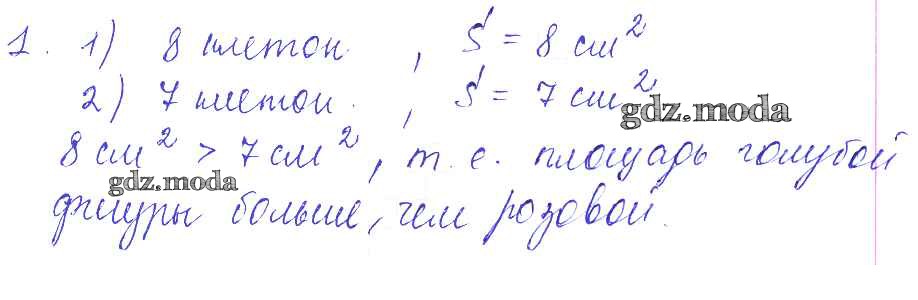 1. 1) 8 клеток. , S = 8 см²
2) 7 клеток. , S = 7 см²
gdz.moda
8 см² > 7 см², т. е. площадь голубой
gdz.moda
фигуры больше, чем розовой.